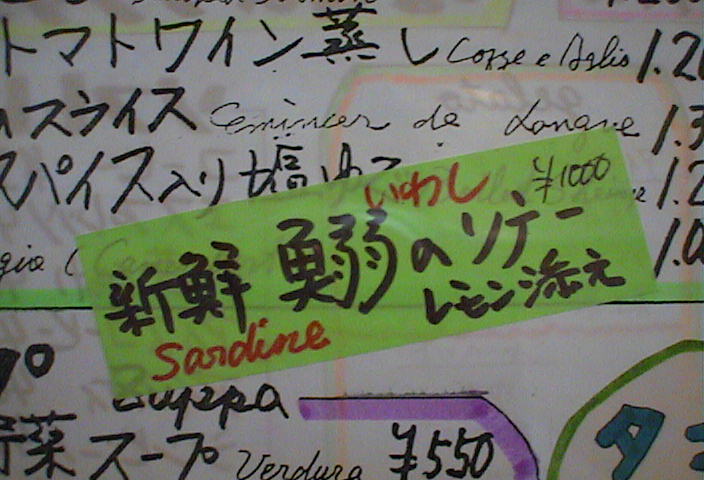 トマトワイン蒸し Cozze e Aglio 1.20
スライス Émincer de Langue 1.3
スパイス入り塩ゆで 1.2
いわし ¥1000
新鮮 鰯のソテー
1.0
レモン添え
Sardine
Zuppa
野菜スープ Verdura ¥550